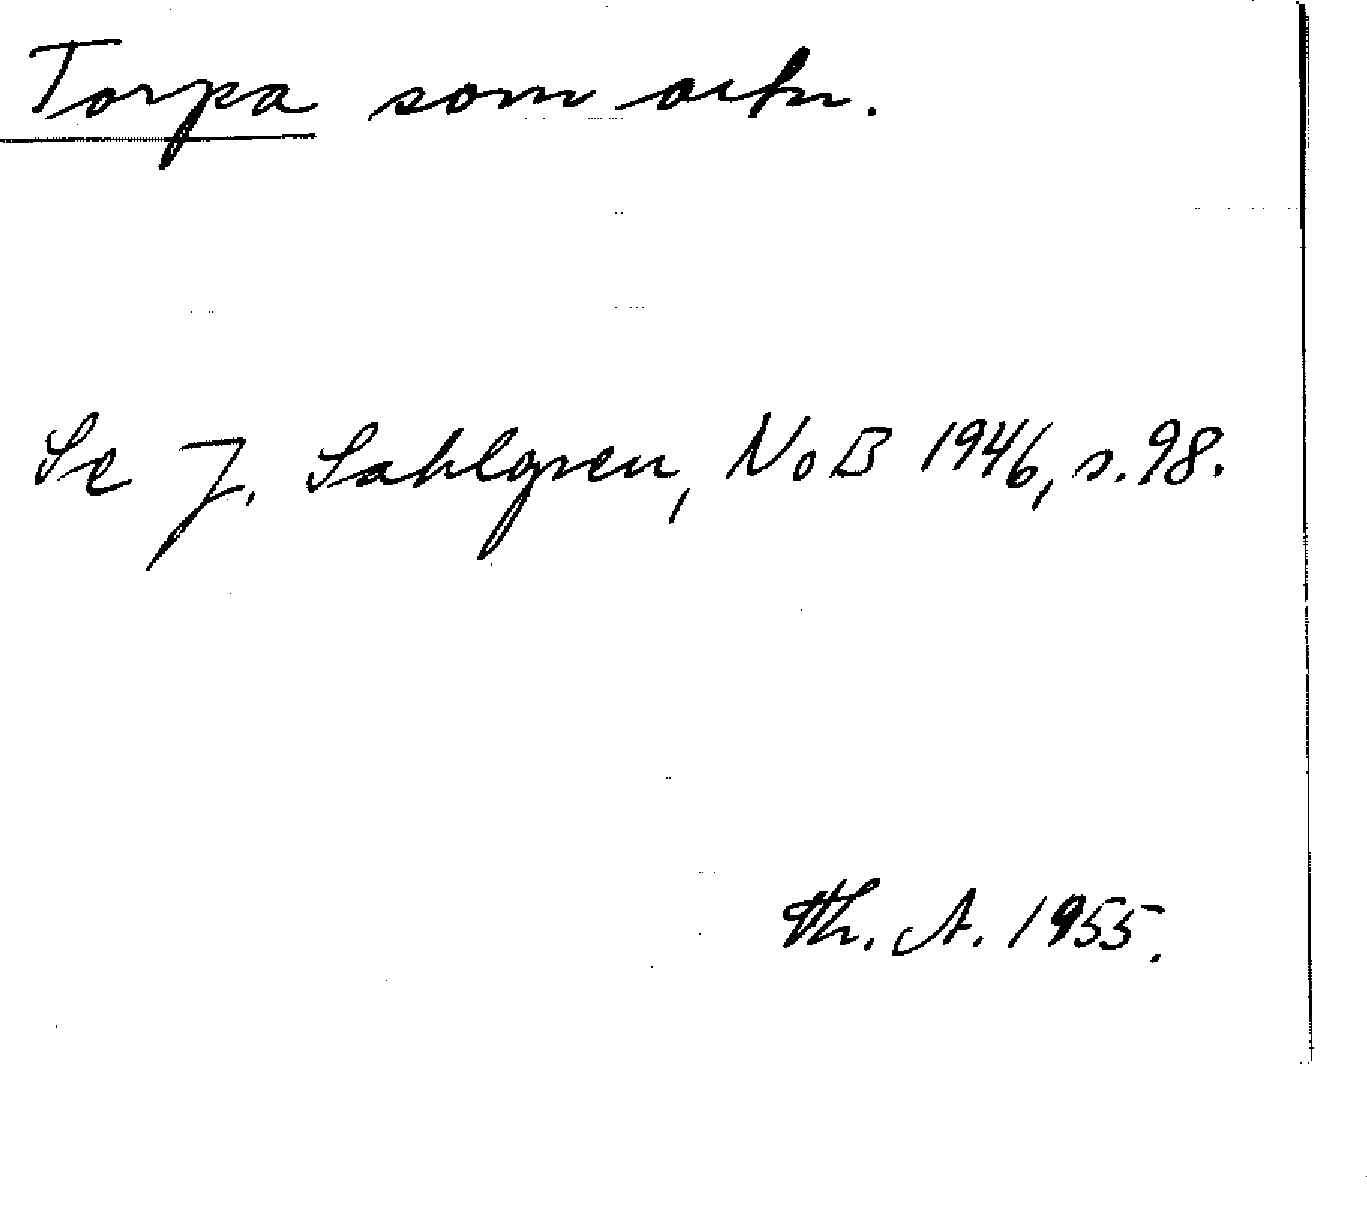 Torpa som ortn.
Se J. Sahlgren, NoB 1946, s. 98.
Th. A. 1955.